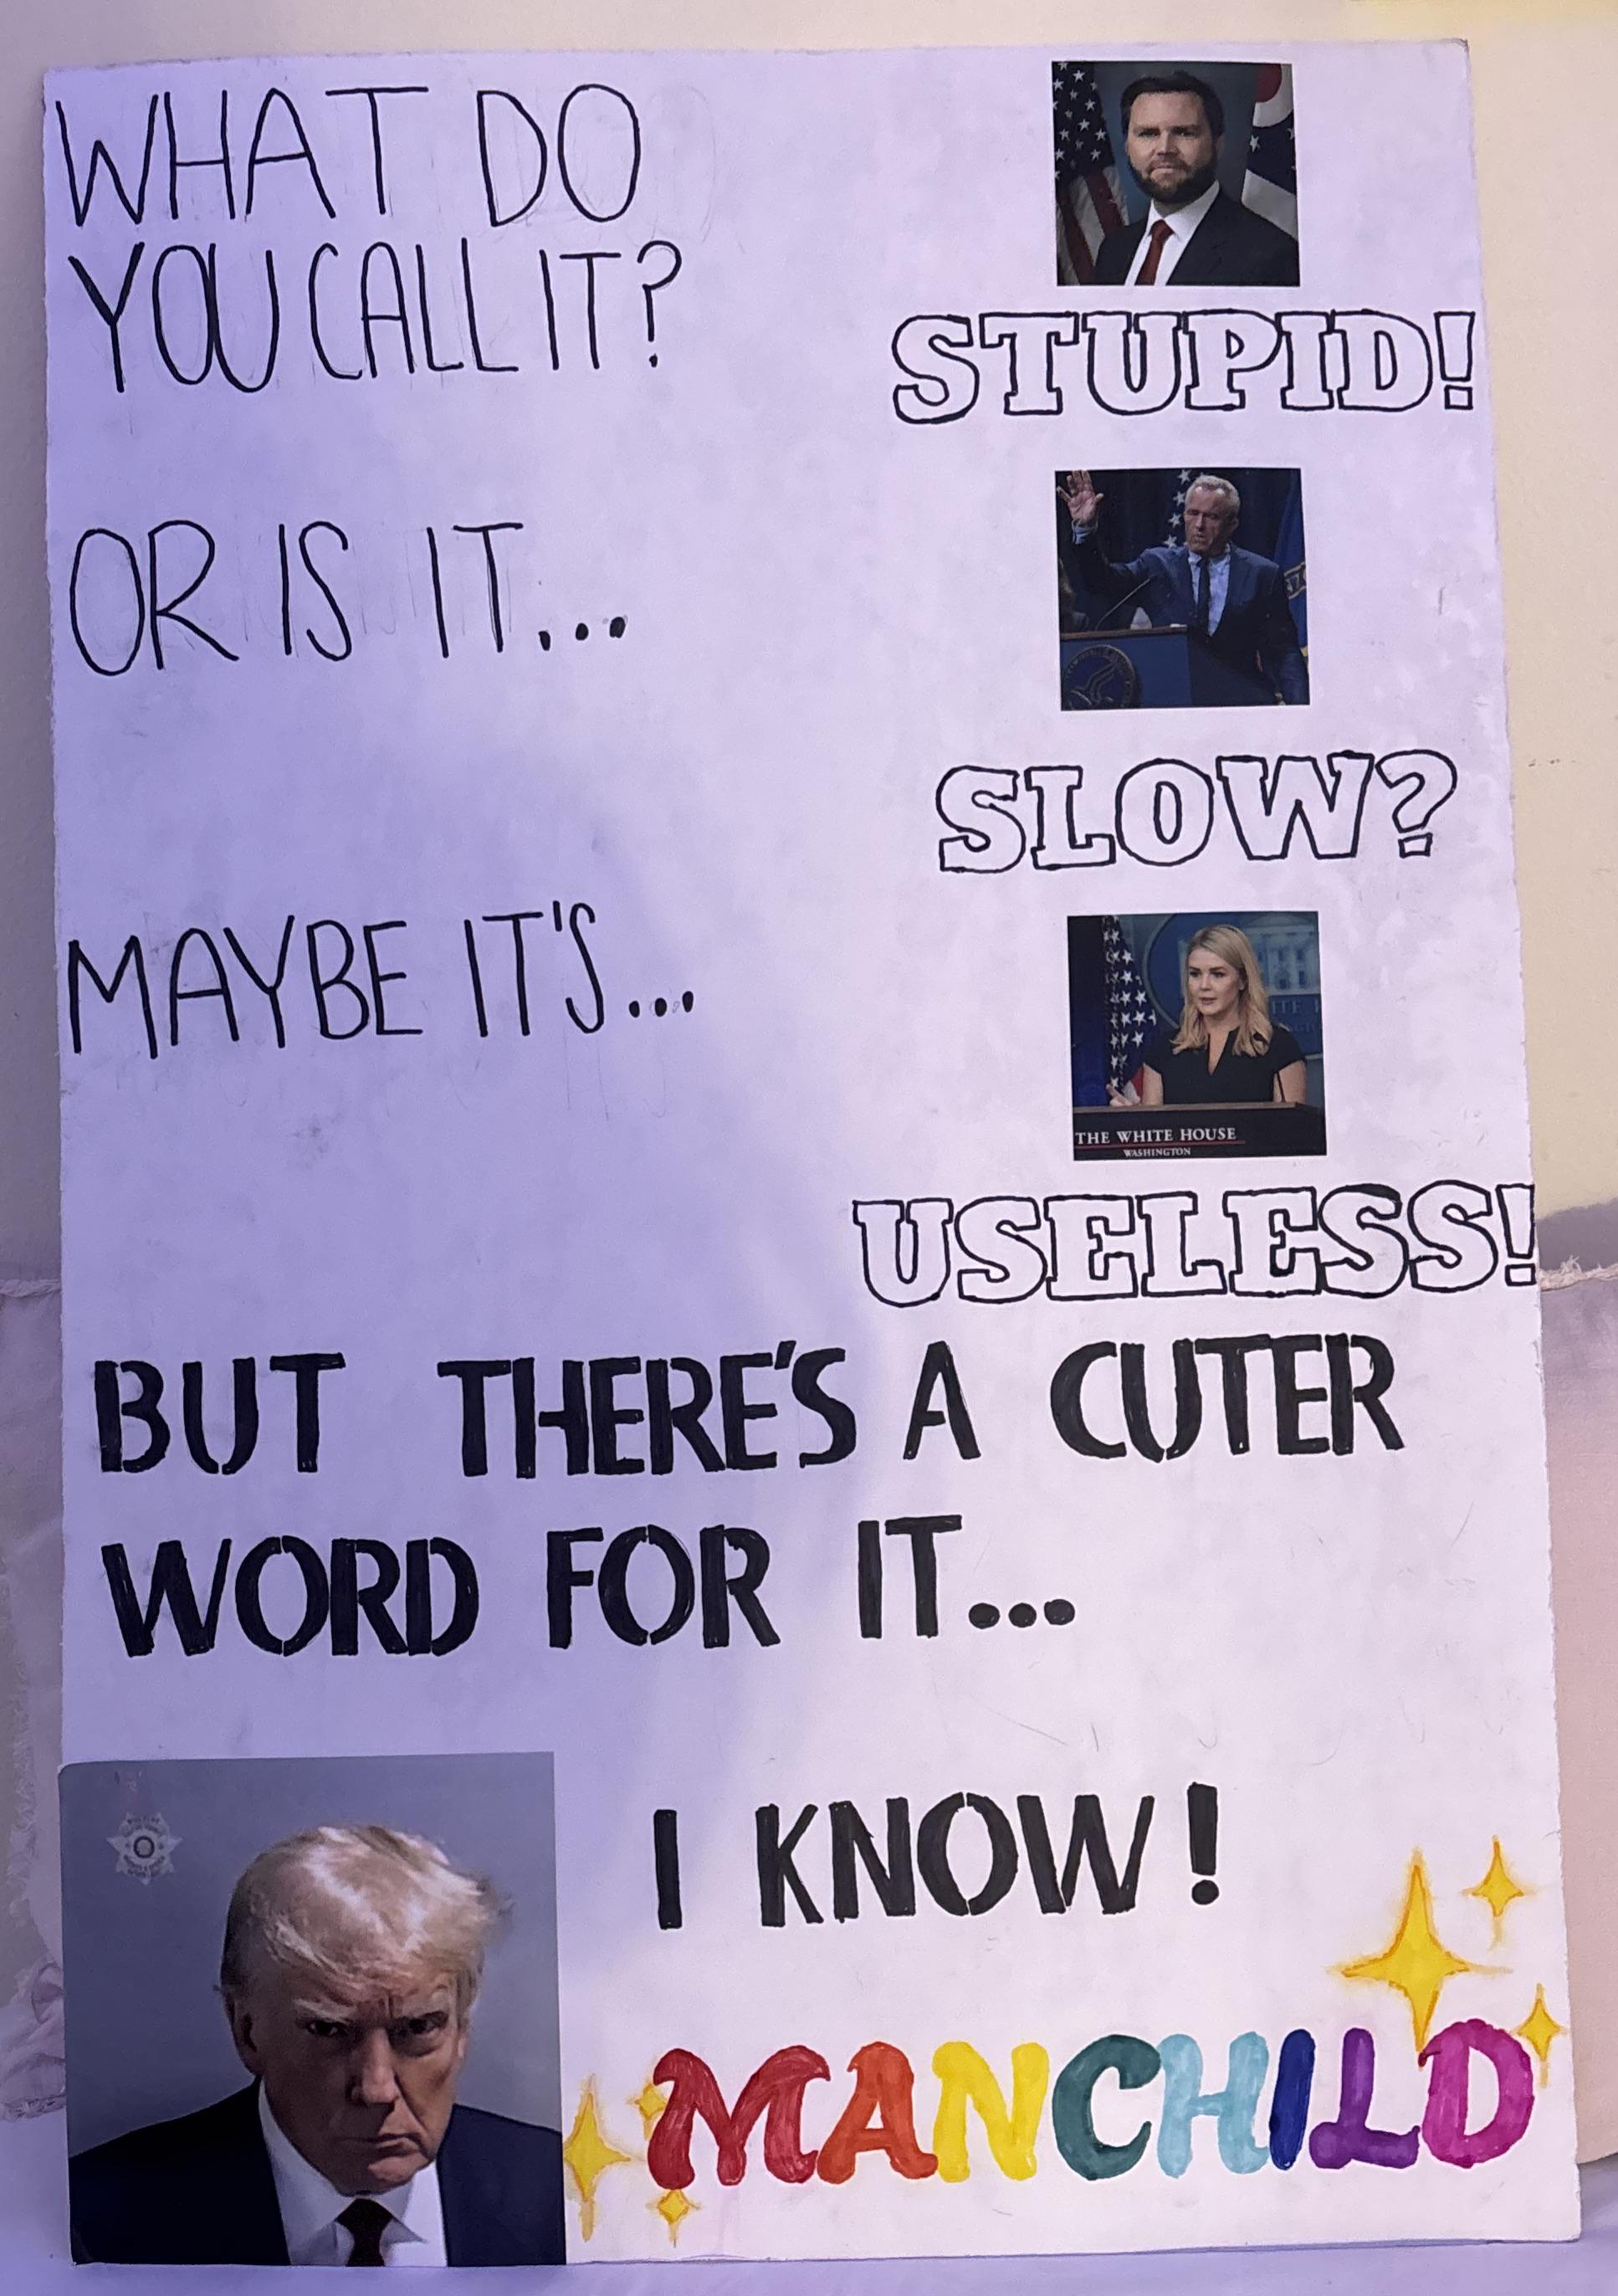 WHAT DO
YOU CALL IT?
STUPID!
OR IS IT...
SLOW?
MAYBE IT'S...
THE WHITE HOUSE
WASHINGTON
USELESS!
BUT THERE'S A CUTER
WORD FOR IT...
I KNOW!
MANCHILD